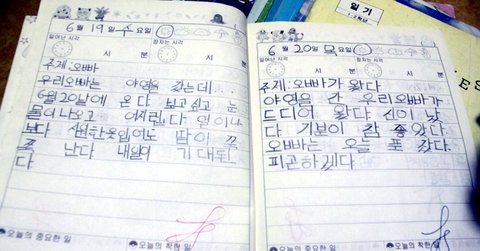 6월 19일 수요일
일어난 시각
잠자는 시각
시 분
시 분
주제: 오빠
우리오빠는 야영을 갔는데...
6월20날에 온다 보고싶고 눈
물이 나오고 어지럽다 열이나
보다 시원한옷입어도 땀이
난다 내일이 기대된
다
오늘의 중요한 일
오늘의 착한 일
6월 20일 목요일
일어난 시각
잠자는 시각
시 분
시 분
주제: 오빠가 왔다
야영을 간 우리오빠가
드디어 왔다 신이 났
다 기분이 참 좋았다
오빠는 오늘 푹 잤다.
피곤하겠다
오늘의 중요한 일
오늘의 착한 일
일기